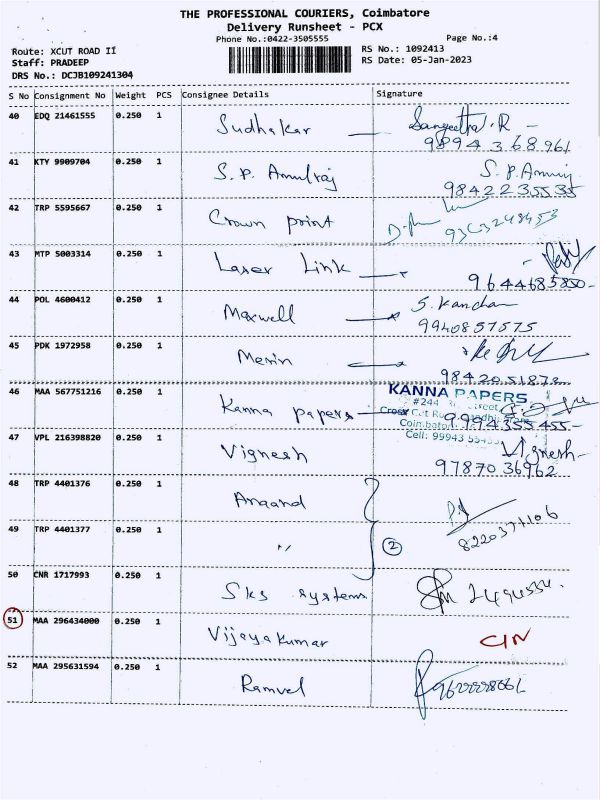 THE PROFESSIONAL COURIERS, Coimbatore
Delivery Runsheet - PCX
Phone No.:0422-3505555
Page No.:4
Route: XCUT ROAD II
RS No.: 1092413
Staff: PRADEEP
RS Date: 05-Jan-2023
DRS No.: DCJB109241304
S No Consignment No Weight PCS Consignee Details Signature
40 EDQ 21461555 0.250 1 Sudhakar Sangeetha.R
9894368961
41 KTY 9909704 0.250 1 S.P. Amulraj S.P.
9842235535
42 TRP 5595667 0.250 1 Crown point
9363248453
43 MTP 5003314 0.250 1 Laser Link
9644685850
44 POL 4600412 0.250 1 Maxwell S. Kandan
9940857575
45 PDK 1972958 0.250 1 Merin
46 MAA 567751216 0.250 1 Kanna papers KANNA PAPERS
#244
Cross Cut
Coimbatore
9994355455
Cell: 99943
47 VPL 216398820 0.250 1 Vignesh Vignesh
9787036962
48 TRP 4401376 0.250 1 Anaand
49 TRP 4401377 0.250 1 〃 2
8220371106
50 CNR 1717993 0.250 1 SKS systems
51 MAA 296434000 0.250 1 Vijayakumar
52 MAA 295631594 0.250 1 Ramvel